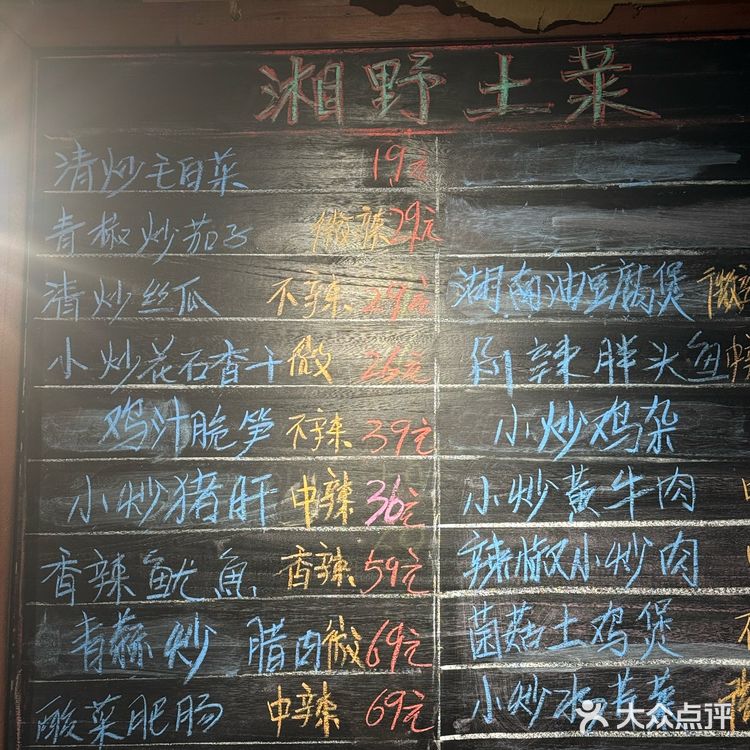 湘野土菜
清炒毛白菜 19元
青椒炒茄子 微辣 29元
清炒丝瓜 不辣 29元
小炒花石香干 微 26元
鸡汁脆笋 不辣 39元
小炒猪肝 中辣 36元
香辣鱿鱼 香辣 59元
青蒜炒腊肉 微 69元
酸菜肥肠 中辣 69元
湖南油豆腐煲 微
辣胖头鱼
小炒鸡杂
小炒黄牛肉
辣椒小炒肉
菌菇土鸡煲
小炒水芹菜
大众点评